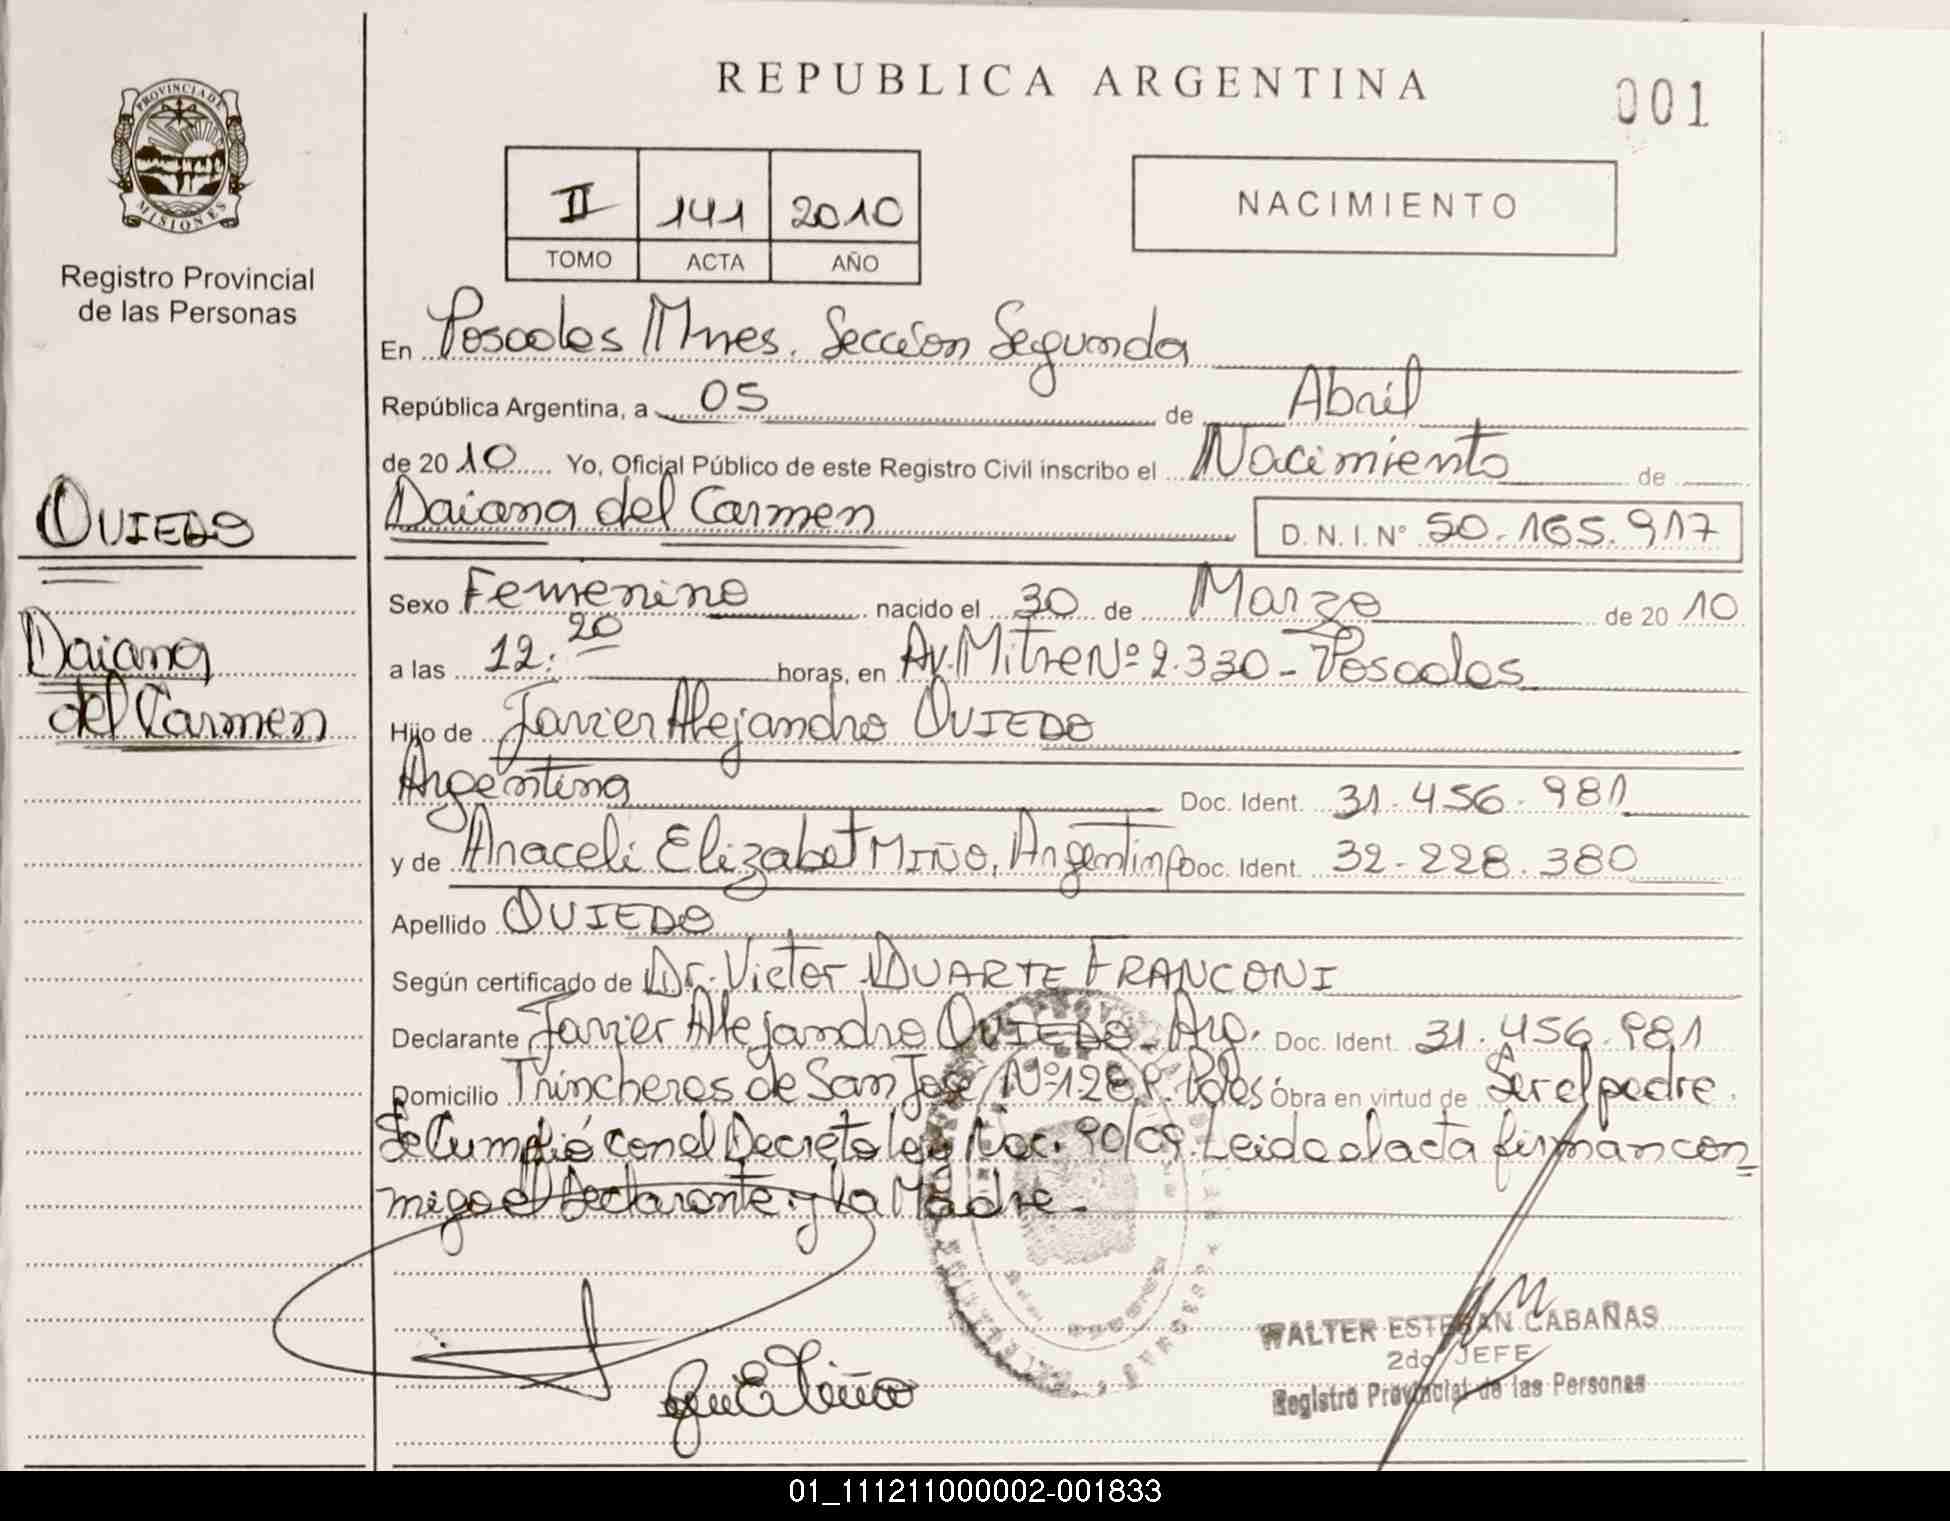 REPUBLICA ARGENTINA
001
PROVINCIA DE
MISIONES
Registro Provincial
de las Personas
II 141 2010
TOMO ACTA AÑO
NACIMIENTO
En Posadas Mnes. Sección Segunda
República Argentina, a 05 de Abril
de 2010 Yo, Oficial Público de este Registro Civil inscribo el Nacimiento de
Daiana del Carmen D.N.I. Nº 50.165.917
OVIEDO
Daiana
del Carmen
Sexo Femenino nacido el 30 de Marzo de 2010
a las 12:20 horas, en Av. Mitre Nº 2.330 - Posadas
Hijo de Javier Alejandro OVIEDO
Argentina Doc. Ident. 31.456.981
y de Anaceli Elizabet MIÑO, Argentina Doc. Ident. 32.228.380
Apellido OVIEDO
Según certificado de Dr. Victor DUARTE FRANCONI
Declarante Javier Alejandro OVIEDO. Arg. Doc. Ident. 31.456.981
Domicilio Trincheras de San José Nº Pdas Obra en virtud de Ser el padre.
Se Cumplió con el Decreto ley Nac. 90/09. Leida el acta firman con=
migo el Declarante y la Madre.-
WALTER ESTEBAN CABAÑAS
2do JEFE
Registro Provincial de las Personas
01_111211000002-001833